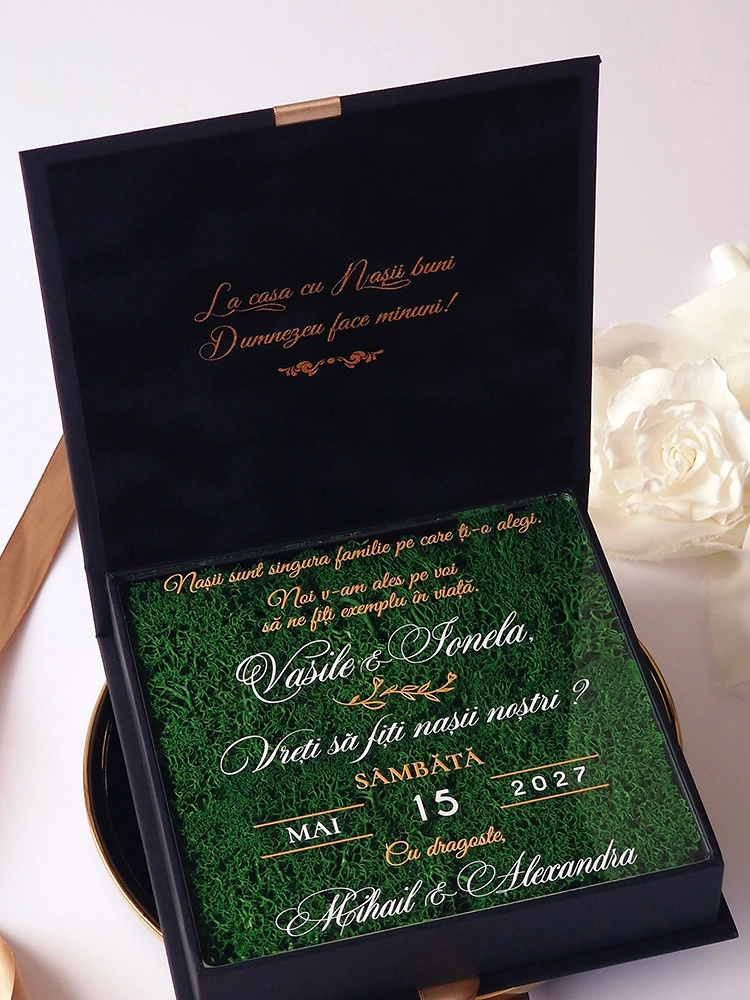 La casa cu Nașii buni
Dumnezeu face minuni!
Nașii sunt singura familie pe care ți-o alegi.
Noi v-am ales pe voi
să ne fiți exemplu în viață.
Vasile & Ionela,
Vreți să fiți nașii noștri ?
SÂMBĂTĂ
MAI 15 2027
Cu dragoste,
Mihail & Alexandra